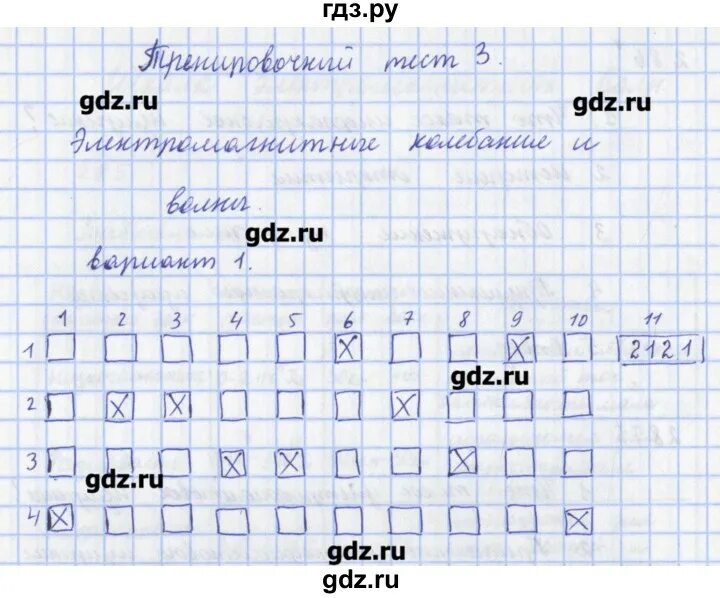 гдз.ру
Тренировочный тест 3.
gdz.ru
gdz.ru
Электромагнитные колебание и
волны.
gdz.ru
вариант 1.
1 2 3 4 5 6 7 8 9 10 11
1 X X 2121
gdz.ru
2 X X X
3 X X X
gdz.ru
4 X X
gdz.ru
gdz.ru